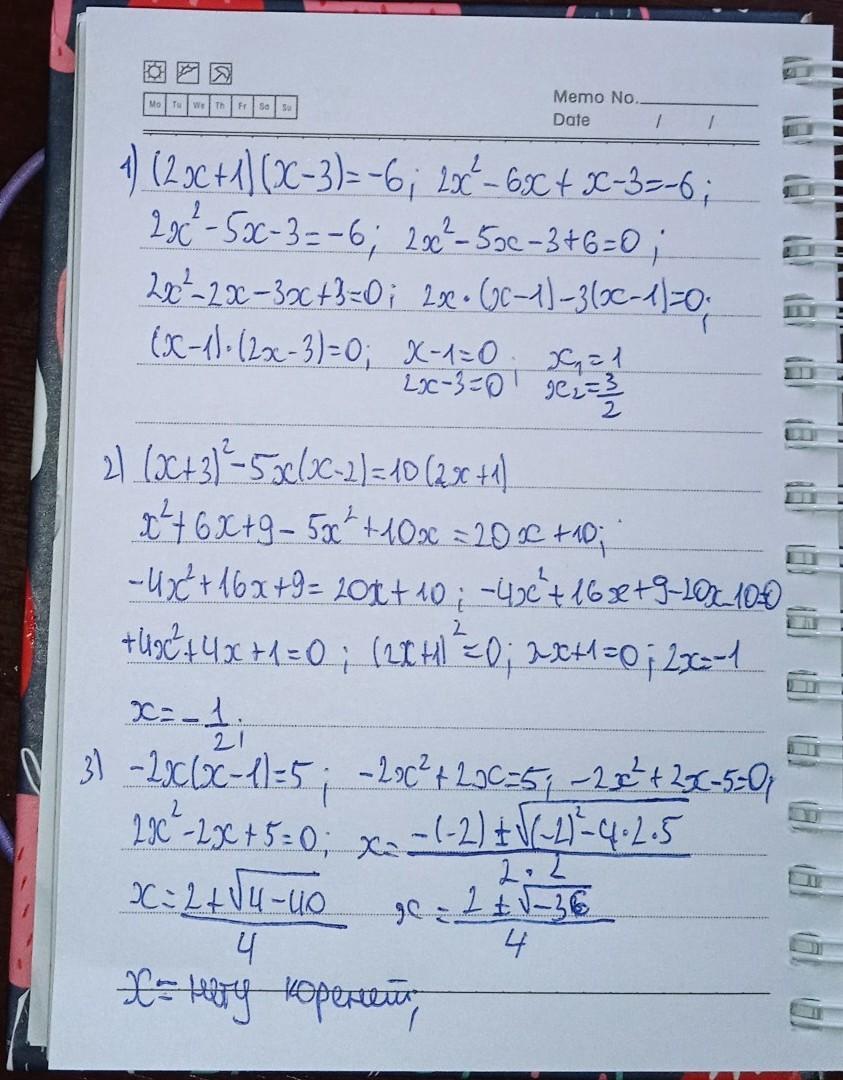 Mo Tu We Th Fr Sa Su
Memo No.
Date / /
1) (2x+1)(x-3)=-6; 2x²-6x+x-3=-6;
2x²-5x-3=-6; 2x²-5x-3+6=0;
2x²-2x-3x+3=0; 2x·(x-1)-3(x-1)=0;
(x-1)·(2x-3)=0; x-1=0; x₁=1
2x-3=0 x₂=3/2
2) (x+3)²-5x(x-2)=10(2x+1)
x²+6x+9-5x²+10x=20x+10;
-4x²+16x+9=20x+10; -4x²+16x+9-20x-10=0
+4x²+4x+1=0; (2x+1)²=0; 2x+1=0; 2x=-1
x=-1/2;
3) -2x(x-1)=5; -2x²+2x=5; -2x²+2x-5=0;
2x²-2x+5=0; x=-(-2)±√(-2)²-4·2·5/2·2
x=2+√4-40/4 x=2±√-36/4
x= нету корений;